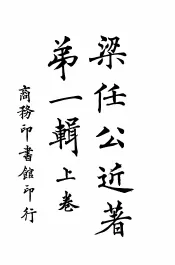 梁任公近著
第一輯上卷
商務印書館印行